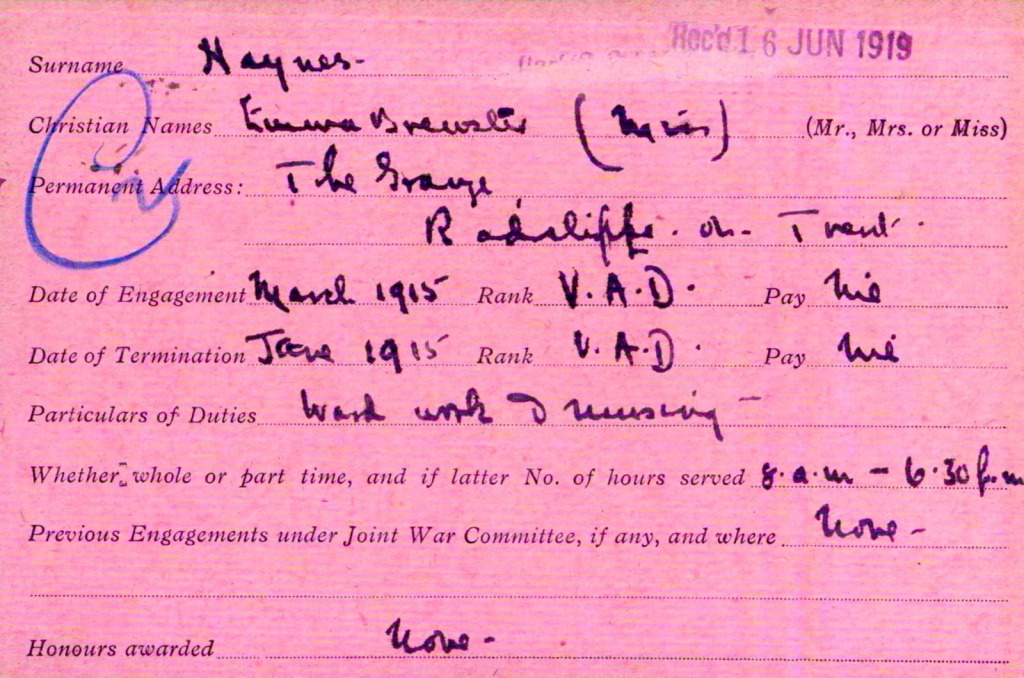 Rec'd 16 JUN 1919
Surname Haynes-
Christian Names Emma Brewster (Miss) (Mr., Mrs. or Miss)
Permanent Address: The Grange
Radcliffe. on- Trent.
Date of Engagement March 1915 Rank V.A.D. Pay Nil
Date of Termination June 1915 Rank V.A.D. Pay Nil
Particulars of Duties Ward work & nursing -
Whether whole or part time, and if latter No. of hours served 8.a.m - 6.30 p.m
Previous Engagements under Joint War Committee, if any, and where None -
Honours awarded None -